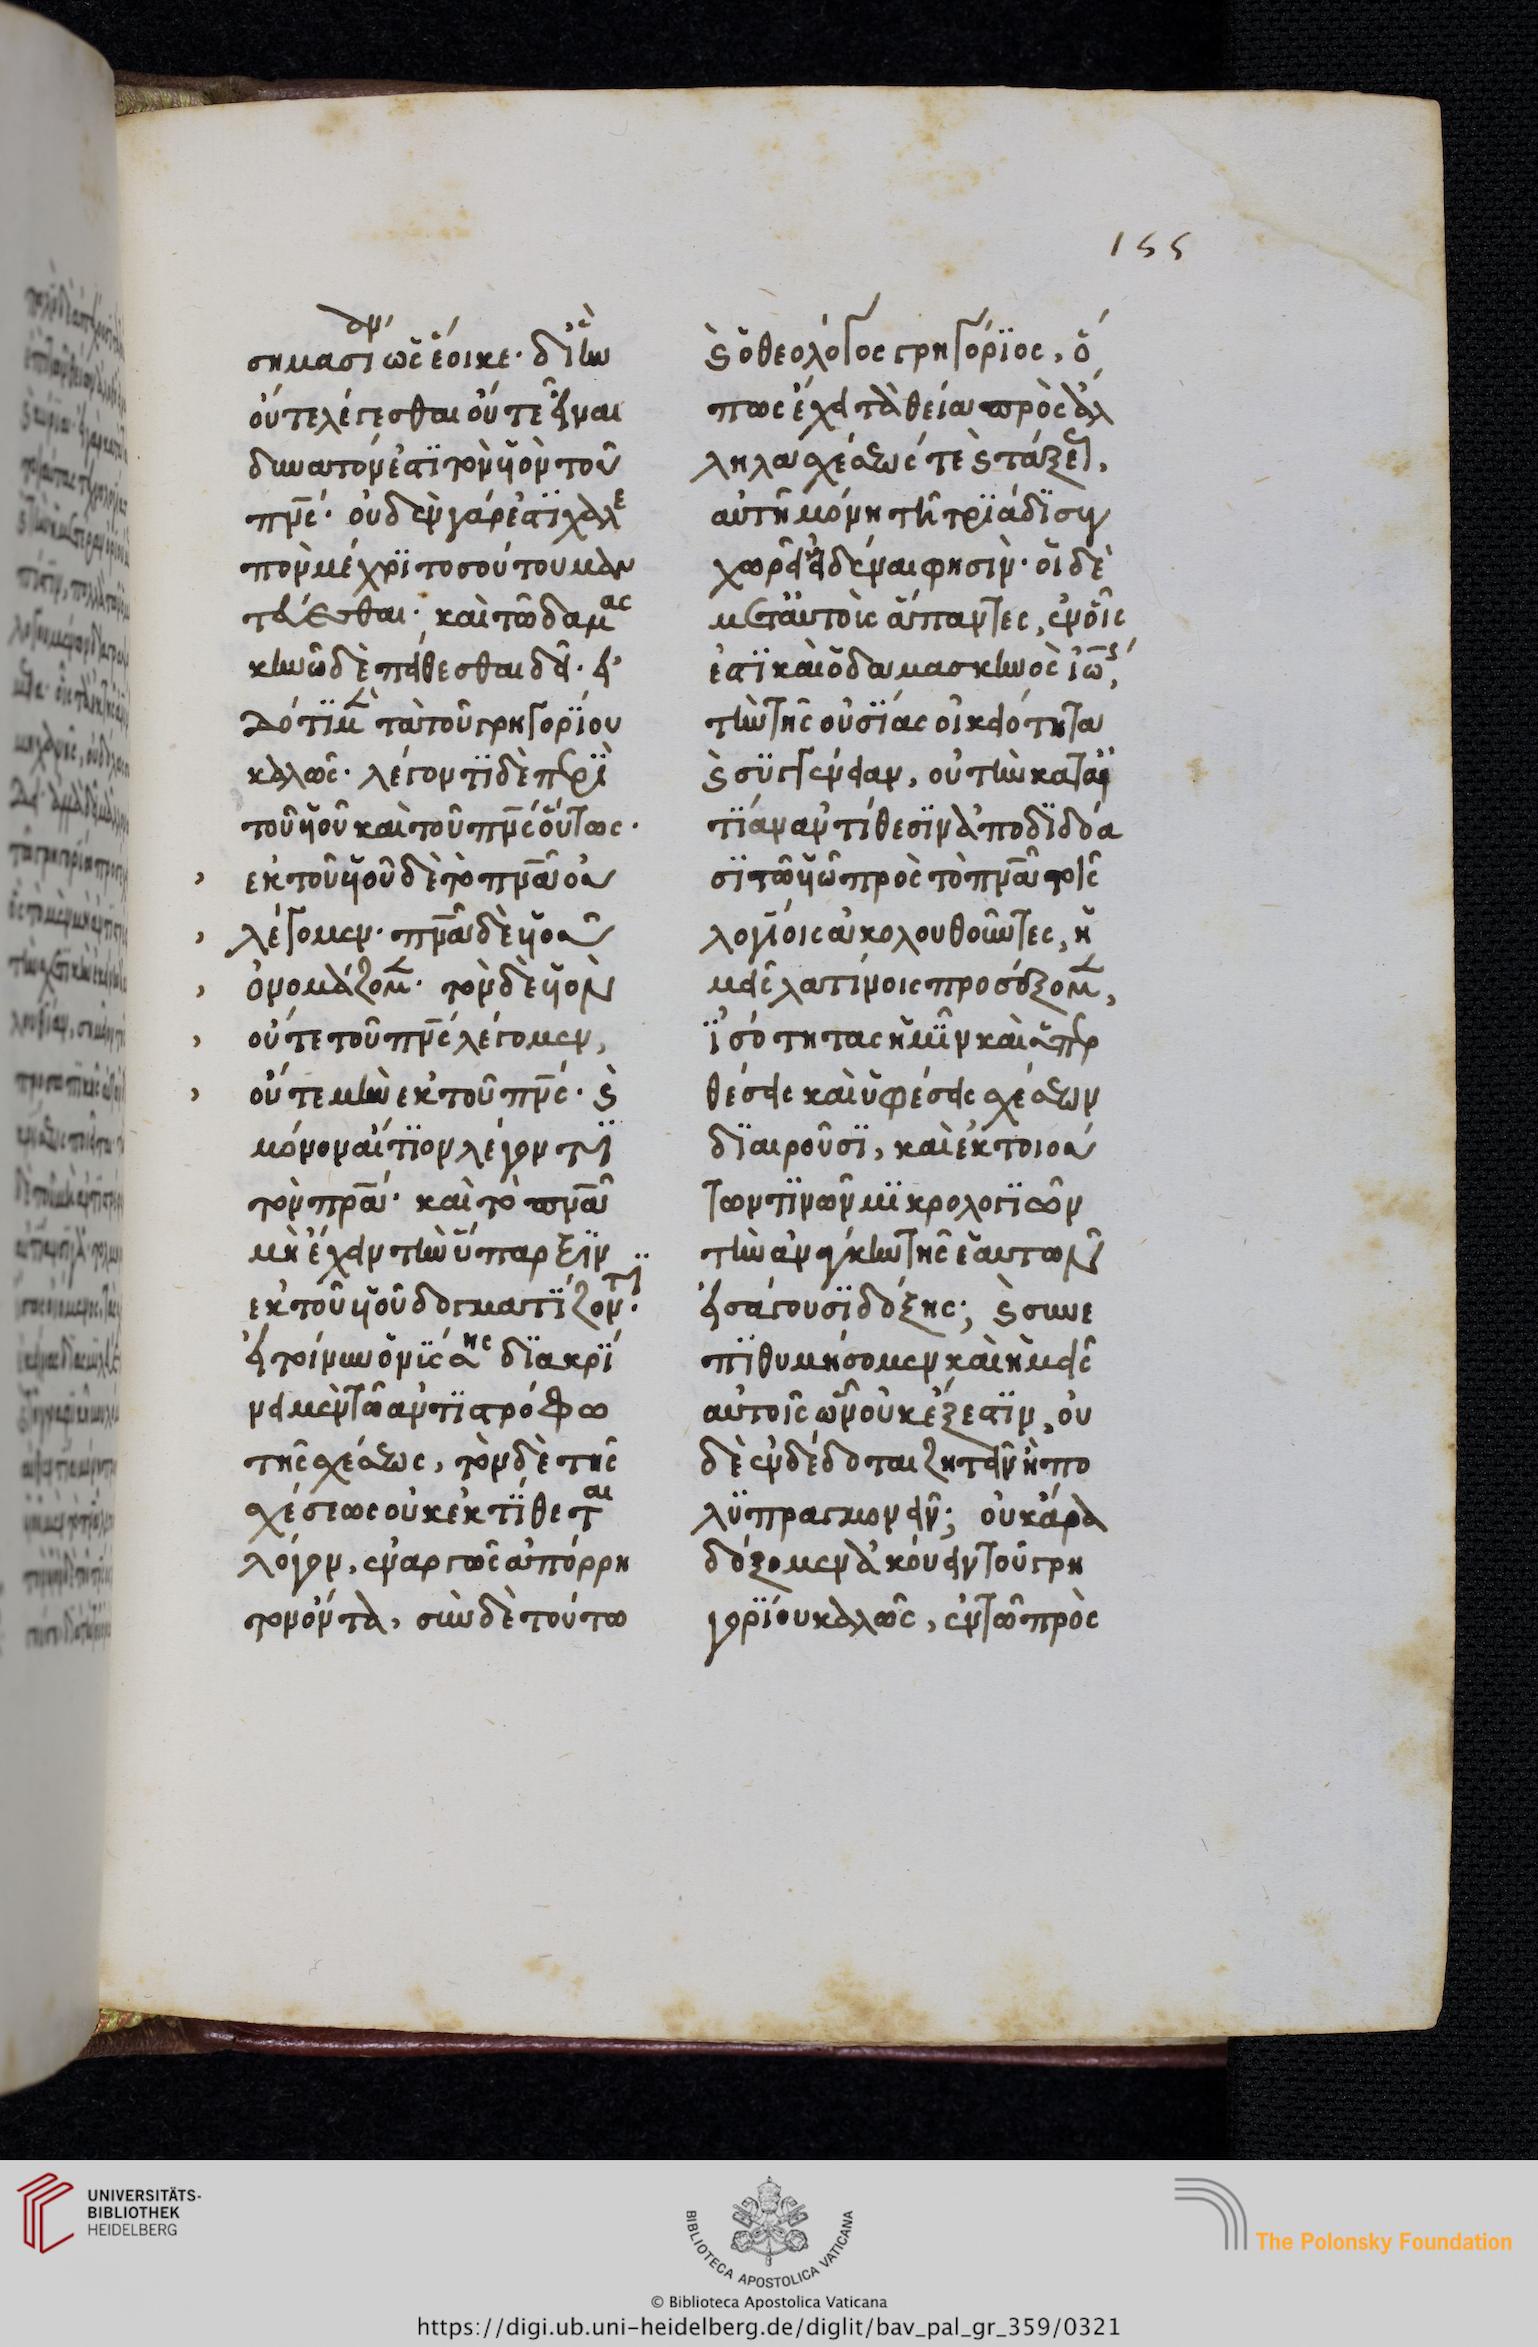 155
σημασι ὡς ἔοικε· δι ἣν
οὔτε λέγεσθαι οὔτε εἶναι
δυνατόν ἐστϊ τὸν υἱὸν τοῦ
πρ̅ς· οὐδὲν γάρ ἐστϊ χαλε
πὸν μέχρϊ τοσούτου μαν
τεύεσθαι· καὶ τῶ δαμασ
κηνῶ δὲ πείθεσθαι δεῖ· εἰ
τὰ τοῦ γρηγορϊου
καλῶς· λέγοντϊ δὲ περϊ
τοῦ υἱοῦ καὶ τοῦ πν̅ς οὕτως·
ἐκ τοῦ υἱοῦ δὲ τὸ πν̅α οὐ
λέγομεν· πν̅α δὲ υἱοῦ
ὀνομάζομεν· τὸν δὲ υἱὸν
οὔτε τοῦ πν̅ς λέγομεν,
οὔτε μὴν ἐκ τοῦ πν̅ς· καὶ
μόνον αἴτϊον λέγοντϊ
τὸν πρ̅α· καὶ τὸ πν̅α
μὴ ἔχειν τὴν ὕπαρξϊν
ἐκ τοῦ υἱοῦ δογματϊζοντϊ·
εἰ τοίνυν ὁ νϊσσης δϊακρϊ
νει μὲν τῶ ἀντϊστρόφω
τῆς σχέσεως, τὸν δὲ τῆς
σχέσεως οὐκ ἐκτϊθεται
λόγον, ἐναργῶς ἀπόρρη
τον ὄντα, σὺν δὲ τούτω
καὶ ὁ θεολόγος γρηγόρϊος, ὅ
πως ἔχει τὰ θεῖα πρὸς ἄλ
ληλα σχέσεώς τε καὶ τάξεως,
αὐτῆ μόνη τῆ τρϊάδϊ συγ
χωρεῖ εἰδέναι φησὶν· οἱ δὲ
μετ αὐτοὺς ἅπαντες, ἐν οἷς
ἐστϊ καὶ ὁ δαμασκηνὸς ἰω̅,
τὴν τῆς οὐσϊας οἰκειότητα
καὶ συγγένειαν, οὐ τὴν κατ αἰ
τϊαν ἀντίθεσϊν ἀποδϊδόα
σϊ τῶ υἱῶ πρὸς τὸ πν̅α τοῖς
λογίοις ἀκολουθοῦντες, ἡ
μεῖς λατίνοις προσέξομεν,
ϊσότητας ἡμῖν καὶ ὑπερ
θέσεις καὶ ὑφέσεις σχέσεων
δϊαιροῦσϊ, καὶ ἐκ τοιού
των τϊνῶν μϊκρολογϊῶν
τὴν ἀνάγκην τῆς ἑαυτῶν
εἰσάγουσϊ δόξης; καὶ συνε
πϊθυμήσομεν καὶ ἡμεῖς
αὐτοῖς ὧν οὐκ ἔξεστϊν, οὐ
δὲ ἐνδέδοται ζητεῖν ἢ πο
λϋπραγμονεῖν; οὐκ ἄρα
δόξομεν ἀκούειν τοῦ γρη
γορϊου καλῶς, ἐν τῶ πρὸς
UNIVERSITÄTS-
BIBLIOTHEK
HEIDELBERG
BIBLIOTECA APOSTOLICA VATICANA
The Polonsky Foundation
© Biblioteca Apostolica Vaticana
https://digi.ub.uni-heidelberg.de/diglit/bav_pal_gr_359/0321